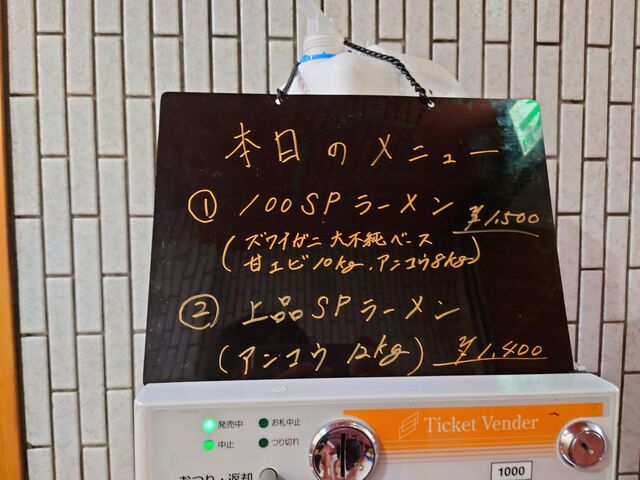 本日のメニュー
① 100SPラーメン ¥1.500
(ズワイガニ 大不純ベース
甘エビ10kg.アンコウ8kg)
② 上品SPラーメン
(アンコウ 12kg) ¥1.400
発売中 お札中止
中止 つり切れ
Ticket Vender
おつり・返却
1000